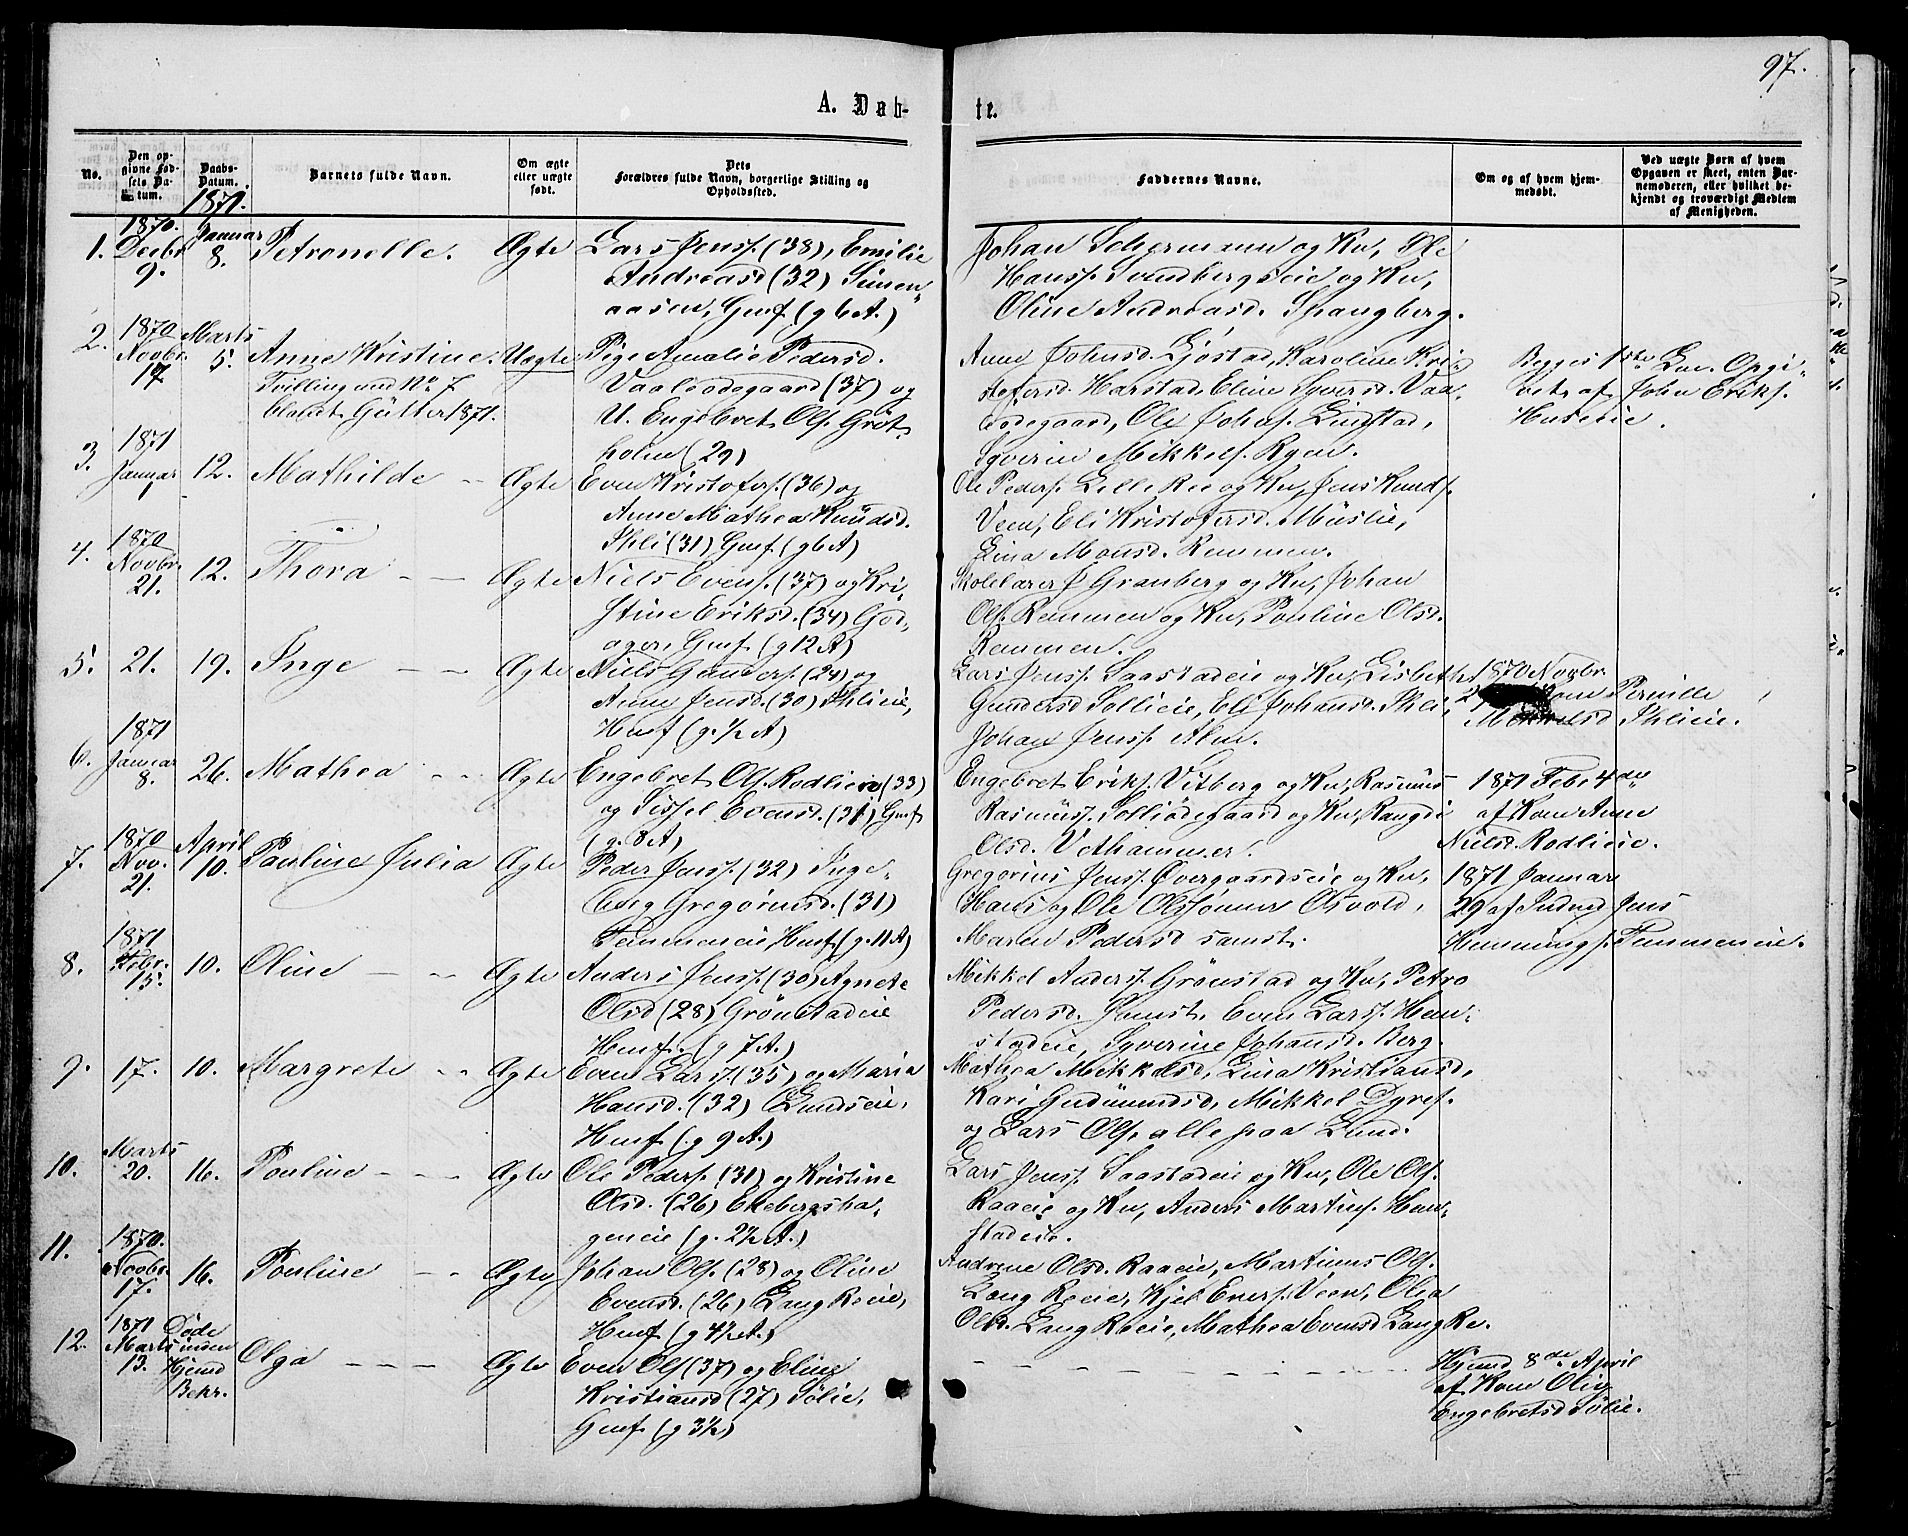 97.
A. Døb-
te.
No.
Den op-
givne Fød-
sels Da-
tum.
Daabs-
Datum.
1871.
Barnets fulde Navn.
Om ægte
eller uægte
født.
Dets
Forældres fulde Navn, borgerlige Stilling og
Opholdssted.
Faddernes Navne.
Om og af hvem hjem-
medøbt.
Ved uægte Børn af hvem
Opgaven er skeet, enten Bar-
nemoderen, eller hvilket be-
kjendt og troværdigt Medlem
af Menigheden.
1. 1870. Decbr 9. Januar 8. Petronelle. Ægte Lars Jensp. (38), Emilie
Andreasd (32) Simen„
aasen, Gmf. (g 6 A.)
Johan Schermann og Kv, Ole
Hansp. Svendbergseie og Kv,
Oline Andreasd. Spangberg.
2. 1870 Novbr. 17 Marts 5. Anne Kristine. Uægte Pige Amalie Pedersd.
Tvilling med No 7
blandt Gutter 1871.
Vaalødegaard (37) og
U. Engebret Olsp. Grøt-
holen (29)
Anne Johnsd. Ljøstad, Karoline Kri-
stofersd. Harstad, Eline Syversd. Vaa-
lødegaard, Ole Johnsp. Lindstad,
Syverin Mikkelsp. Ryen.
Begges 1ste Lov. Opgi-
vet af John Eriksp.
Huseeie.
3. 1871 Januar 1 12. Mathilde Ægte Even Kristofersp. (36) og
Anne Mathea Knudsd.
Ihli (31) Gmf. (g 6 A)
Ole Pedersp. Lille Ree og Kv, Jens Knudsp.
Veen, Eli Kristofersd. Muslie,
Lina Monsd. Remmen.
4. 1870 Novbr. 21. 12. Thora Ægte Niels Evensp. (37) og Kri-
stine Eriksd. (34) God-
ager, Gmf. (g 12 A)
Skolelærer J Granberg og Kv, Johan
Olsp. Remmen og Kv, Pouline Olsd.
Remmen.
5. 21. 19. Inge Ægte Niels Gundersp. (24) og
Anne Jensd. (30) Ihlieie,
Husf (g. 1/2 A)
Lars Jensp. Saastadeie og Kv, Lisbeth
Gundersd Sollieie, Eli Johansd. Ihli,
Johan Jensp. Alm.
1870 Novbr
Kone Pernille
Mikkelsd Ihlieie.
6. 1871 Januar 8. 26. Mathea Ægte Engebret Olsp. Rodlieie (33)
og Sissel Evensd. (31) Gmf
(g. 8 A)
Engebret Eriksp. Vitberg og Kv, Rasmus
Rasmusp. Solliødegaard og Kv, Rangdi
Olsd. Vethammer.
1871 Feb: 4de
af Kone Anne
Nielsd. Rodlieie.
7. 1870 Nov. 21. April 10. Pauline Julia Ægte Peder Jensp. (32) Inge-
borg Gregoriusd. (31)
Temmeneie Husf. (g. 11 A)
Gregorius Jensp. Øvergaardseie og Kv,
Hans og Ole Olssønner Osvold,
Maren Pedersd samst.
1871 Januar
29 af Indred Jens
Henningsp. Temmeneie.
8. 1871 Febr. 15. 10. Oline Ægte Anders Jensp. (30) Agnete
Olsd (28) Grønstadeie
Husf. (g 7 A.)
Mikkel Andersp. Grønstad og Kv, Petro
Pedersd. samst. Even Larsp. Hen-
stadeie, Syverine Johansd. Berg.
9. 17. 10. Margrete Ægte Even Larsp (35) og Maria
Hansd. (32) Lundseie,
Husf (g 9 A.)
Mathea Mikkelsd, Lina Kristiansd,
Kari Gudmundsd, Mikkel Dyresp.
og Lars Olsp, alle paa Lund.
10. Marts 20. 16. Pouline Ægte Ole Pedersp. (31) og Kristine
Olsd. (26) Ekebergsha-
geneie (g. 2 1/2 A.)
Lars Jensp Saastadeie og Kv, Ole Olsp.
Raaeie og Kv, Anders Martinsp. Hen-
stadeie.
11. 1870. Novbr. 17. 16. Pouline Ægte Johan Olsp. (28) og Oline
Evensd. (26) Lang Reeie,
Husf (g 4 1/2 A.)
Andrine Olsd. Raaeie, Martinus Olsp.
Lang Reeie, Kjel Eversp. Veen, Olea
Olsd. Lang Reeie, Mathea Evensd Lang Re.
12. 1871 Marts 13. Døde
inden
Hjemd
Bekr. Olga Ægte Even Olsp (37) og Eline
Kristiansd (27) Sølie,
Gmf. (g 3 1/2)
Hjemd 8de April
af Kone Olig
Engebretsd Sølie.